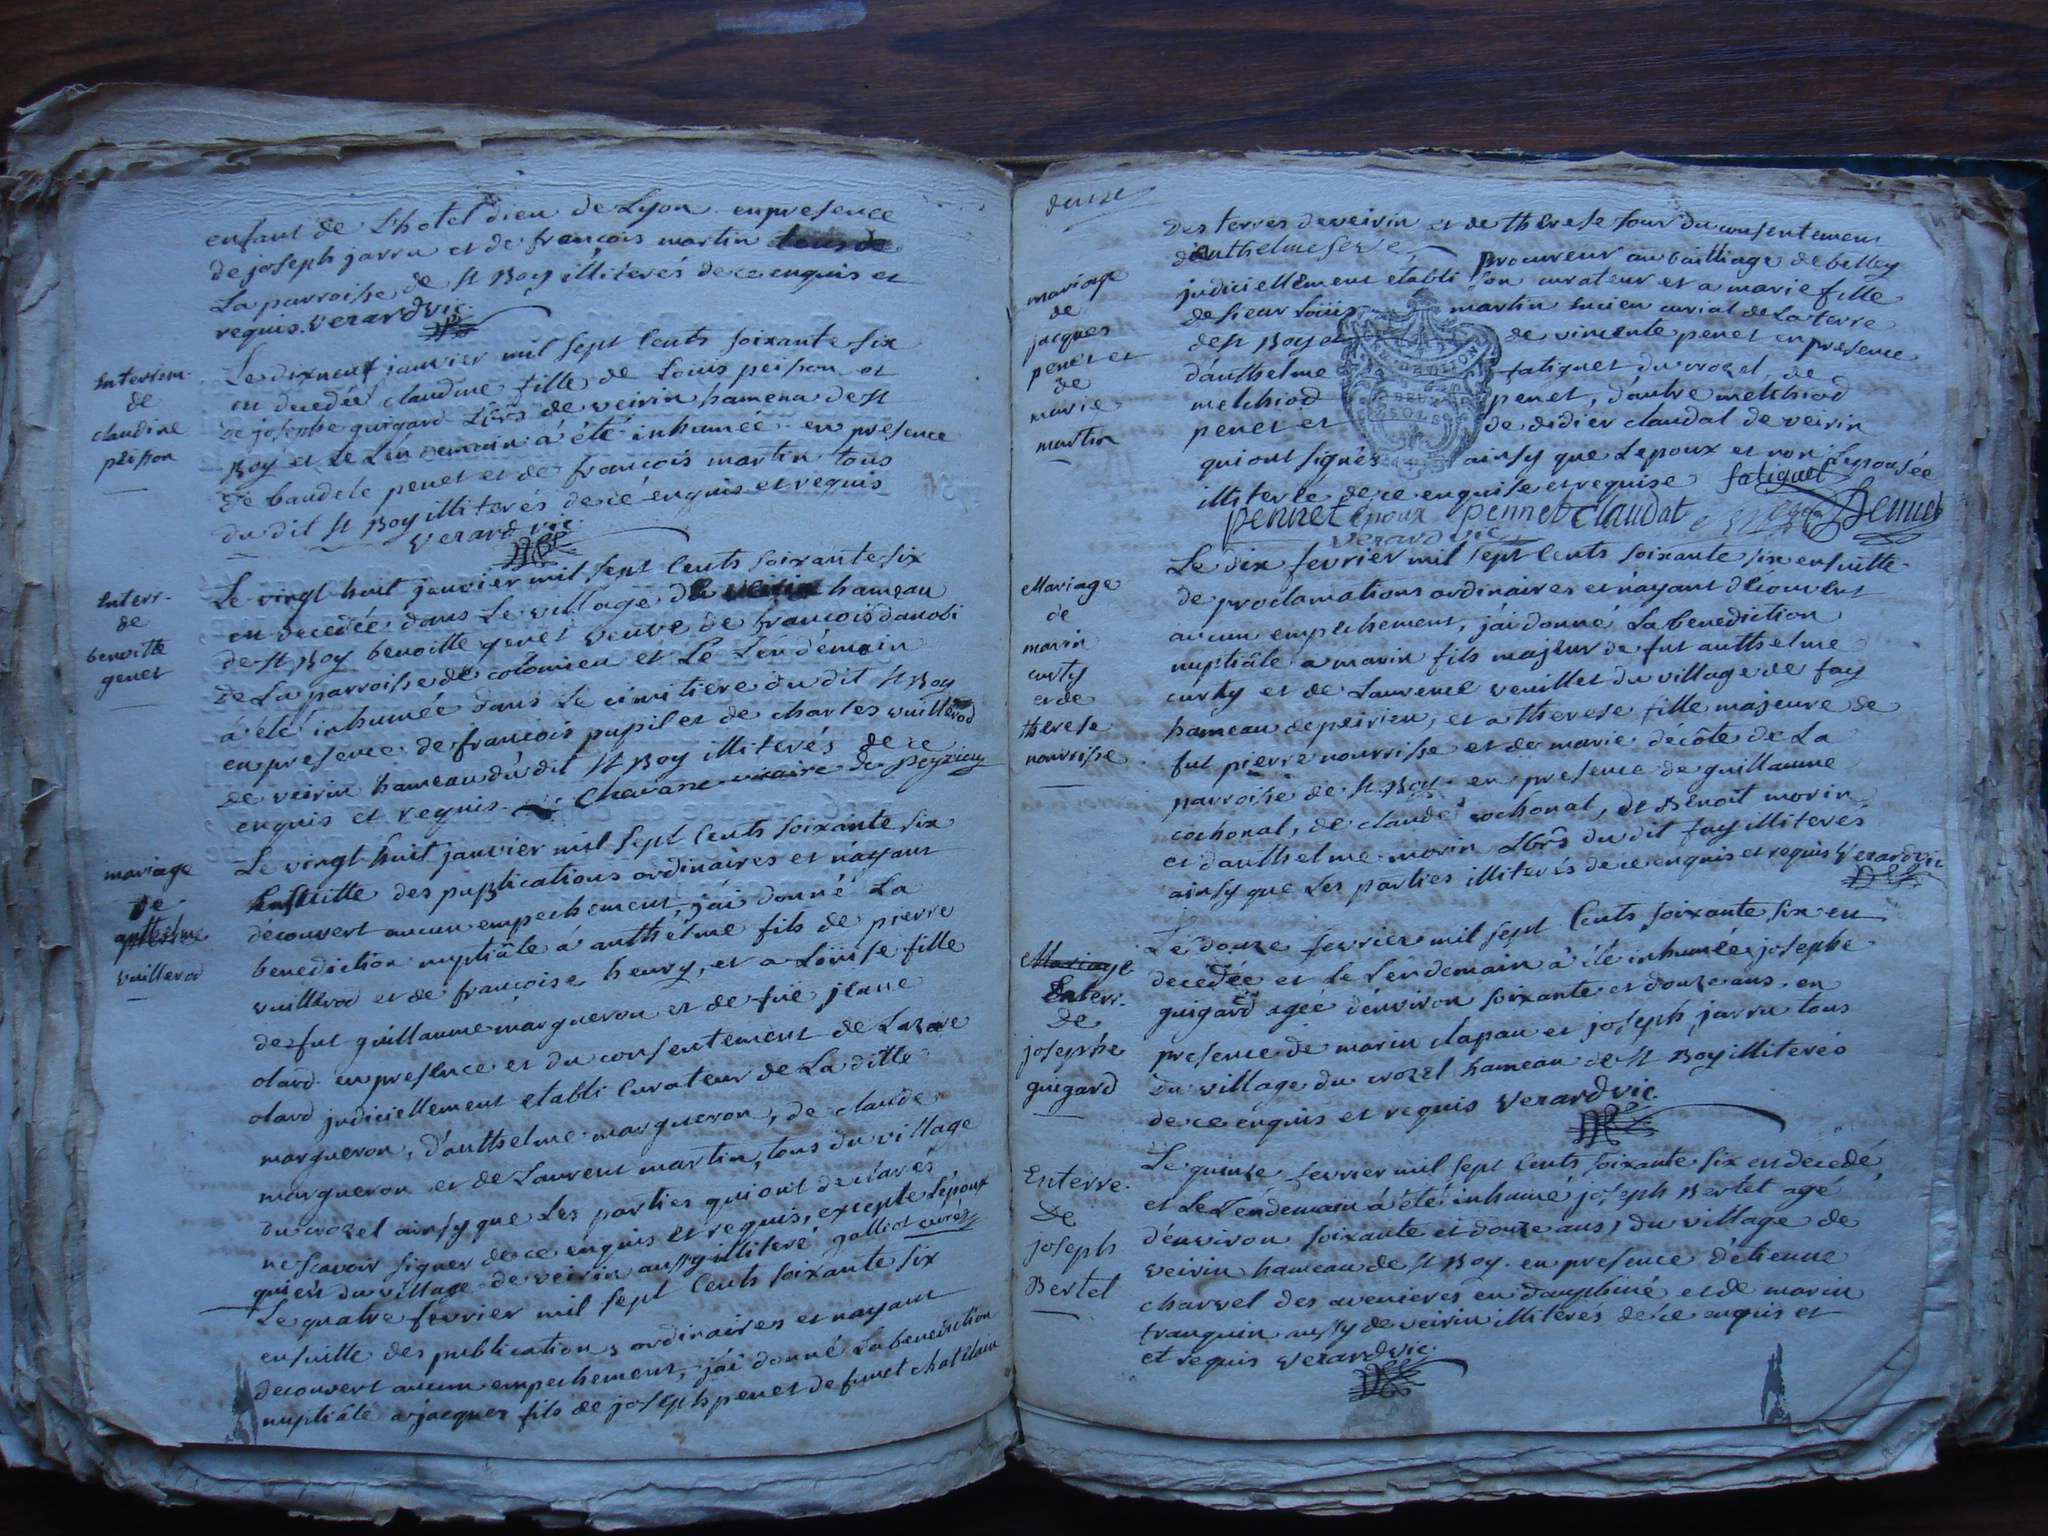 enfant de L'hotel dieu de Lyon en presence
de joseph jarru et de françois martin tous de
La parroisse de st Boy illiterés de ce enquis et
requis. verard vic.
Interrem.
de
claudine
peisson
Le dix neuf janvier mil sept Cents soixante six
est decedée claudine fille de Louis peisson et
de josephe guigard Lbrs de veirin hameau de st
Boy et Le Lendemain à été inhumée en presence
de baudele penet et de françois martin tous
du dit st Boy illiterés de cé enquis et requis
verard vic.
Interr.
de
benoitte
genet
Le vingt huit janvier mil sept Cents soixante six
est decedée dans Le village de veirin hameau
de st Boy benoitte genet veuve de françois danobi
de La parroisse de colomieu et Le Lendemain
à été inhumée dans Le cimitiere du dit st Boy
en presence de françois pupil et de charles vuillerod
de veirin hameau du dit st Boy illiterés de ce
enquis et requis. Chavane vicaire de peyrieu
mariage
de
anthelme
vuillerod
Le vingt huit janvier mil sept Cents soixante six
Ensuitte des publications ordinaires et n'ayant
découvert aucun empechement, j'ai donné La
benediction nuptiâle à anthelme fils de pierre
vuillerod et de françoise henry, et a Loüise fille
de fut guillaume margueron et de fuë jeane
olard en presence et du consentement de Lazare
olard judiciellement etabli curateur de La ditte
margueron, d'anthelme margueron, de claude
margueron et de Laurent martin, tous du village
du crozel ainsy que Les parties qui ont declarés
ne scavoir signer de ce enquis et requis, excepte L'epoux
qui est du village de veirin aussy illiteré galliot curé
Le quatre fevrier mil sept Cents soixante six
ensuitte des publications ordinaires et n'ayant
decouvert aucun empechement, j'ai donné La benediction
nuptiâle a jacques fils de joseph penet de funet chatelain
douze
mariage
de
jacques
penet et
de
marie
martin
des terres de veirin et de therese four du consentement
d'anthelme procureur au bailliage de belley
judiciellement etabli son curateur et a marie fille
de sieur Loüis martin ancien curial de La terre
de st Boy et de vincente penet en presence
d'anthelme fatiguet du crozel, de
melchiod penet, d'autre melchiod
penet et de didier claudat de veirin
qui ont signés ainsy que L'epoux et non L'epousée
illiterée de ce enquise et requise fatiguet
pennet epoux pennet claudat pennet
verard vic.
DEUX
SOLS
Mariage
de
marin
curty
et de
therese
nourrisse
Le dix fevrier mil sept Cents soixante six ensuitte
de proclamations ordinaires et n'ayant découvert
aucun empechement, j'ai donné La benediction
nuptiâle a marin fils majeur de fut anthelme
curty et de Laurence veuillet du village de fay
hameau de peirieu, et a therese fille majeure de
fut pierre nourrisse et de marie decôte de La
parroise de st Boy en presence de guillaume
cochonat, de claude cochonat, de Benoit morin
et d'anthelme morin Lbrs du dit fay illiterés
ainsy que Les parties illiterés de ce enquis et requis verard vic
Mariage
Enterr.
De
josephe
guigard
Le douze fevrier mil sept Cents soixante six est
decedée et Le Lendemain à été inhumée josephe
guigard agée d'environ soixante et douze ans. en
presence de marin clapau et joseph jarru tous
du village du crozel hameau de st Boy illiterés
de ce enquis et requis verard vic.
Enterre.
De
joseph
Bertet
Le quinze fevrier mil sept Cents soixante six est decedé
et Le Lendemain à été inhumé joseph Bertet agé
d'environ soixante et douze ans, du village de
veirin hameau de st Boy. en presence d'etienne
charvel des avenieres en dauphiné et de marin
tranquin aussy de veirin illiterés de ce enquis et
et requis verard vic.